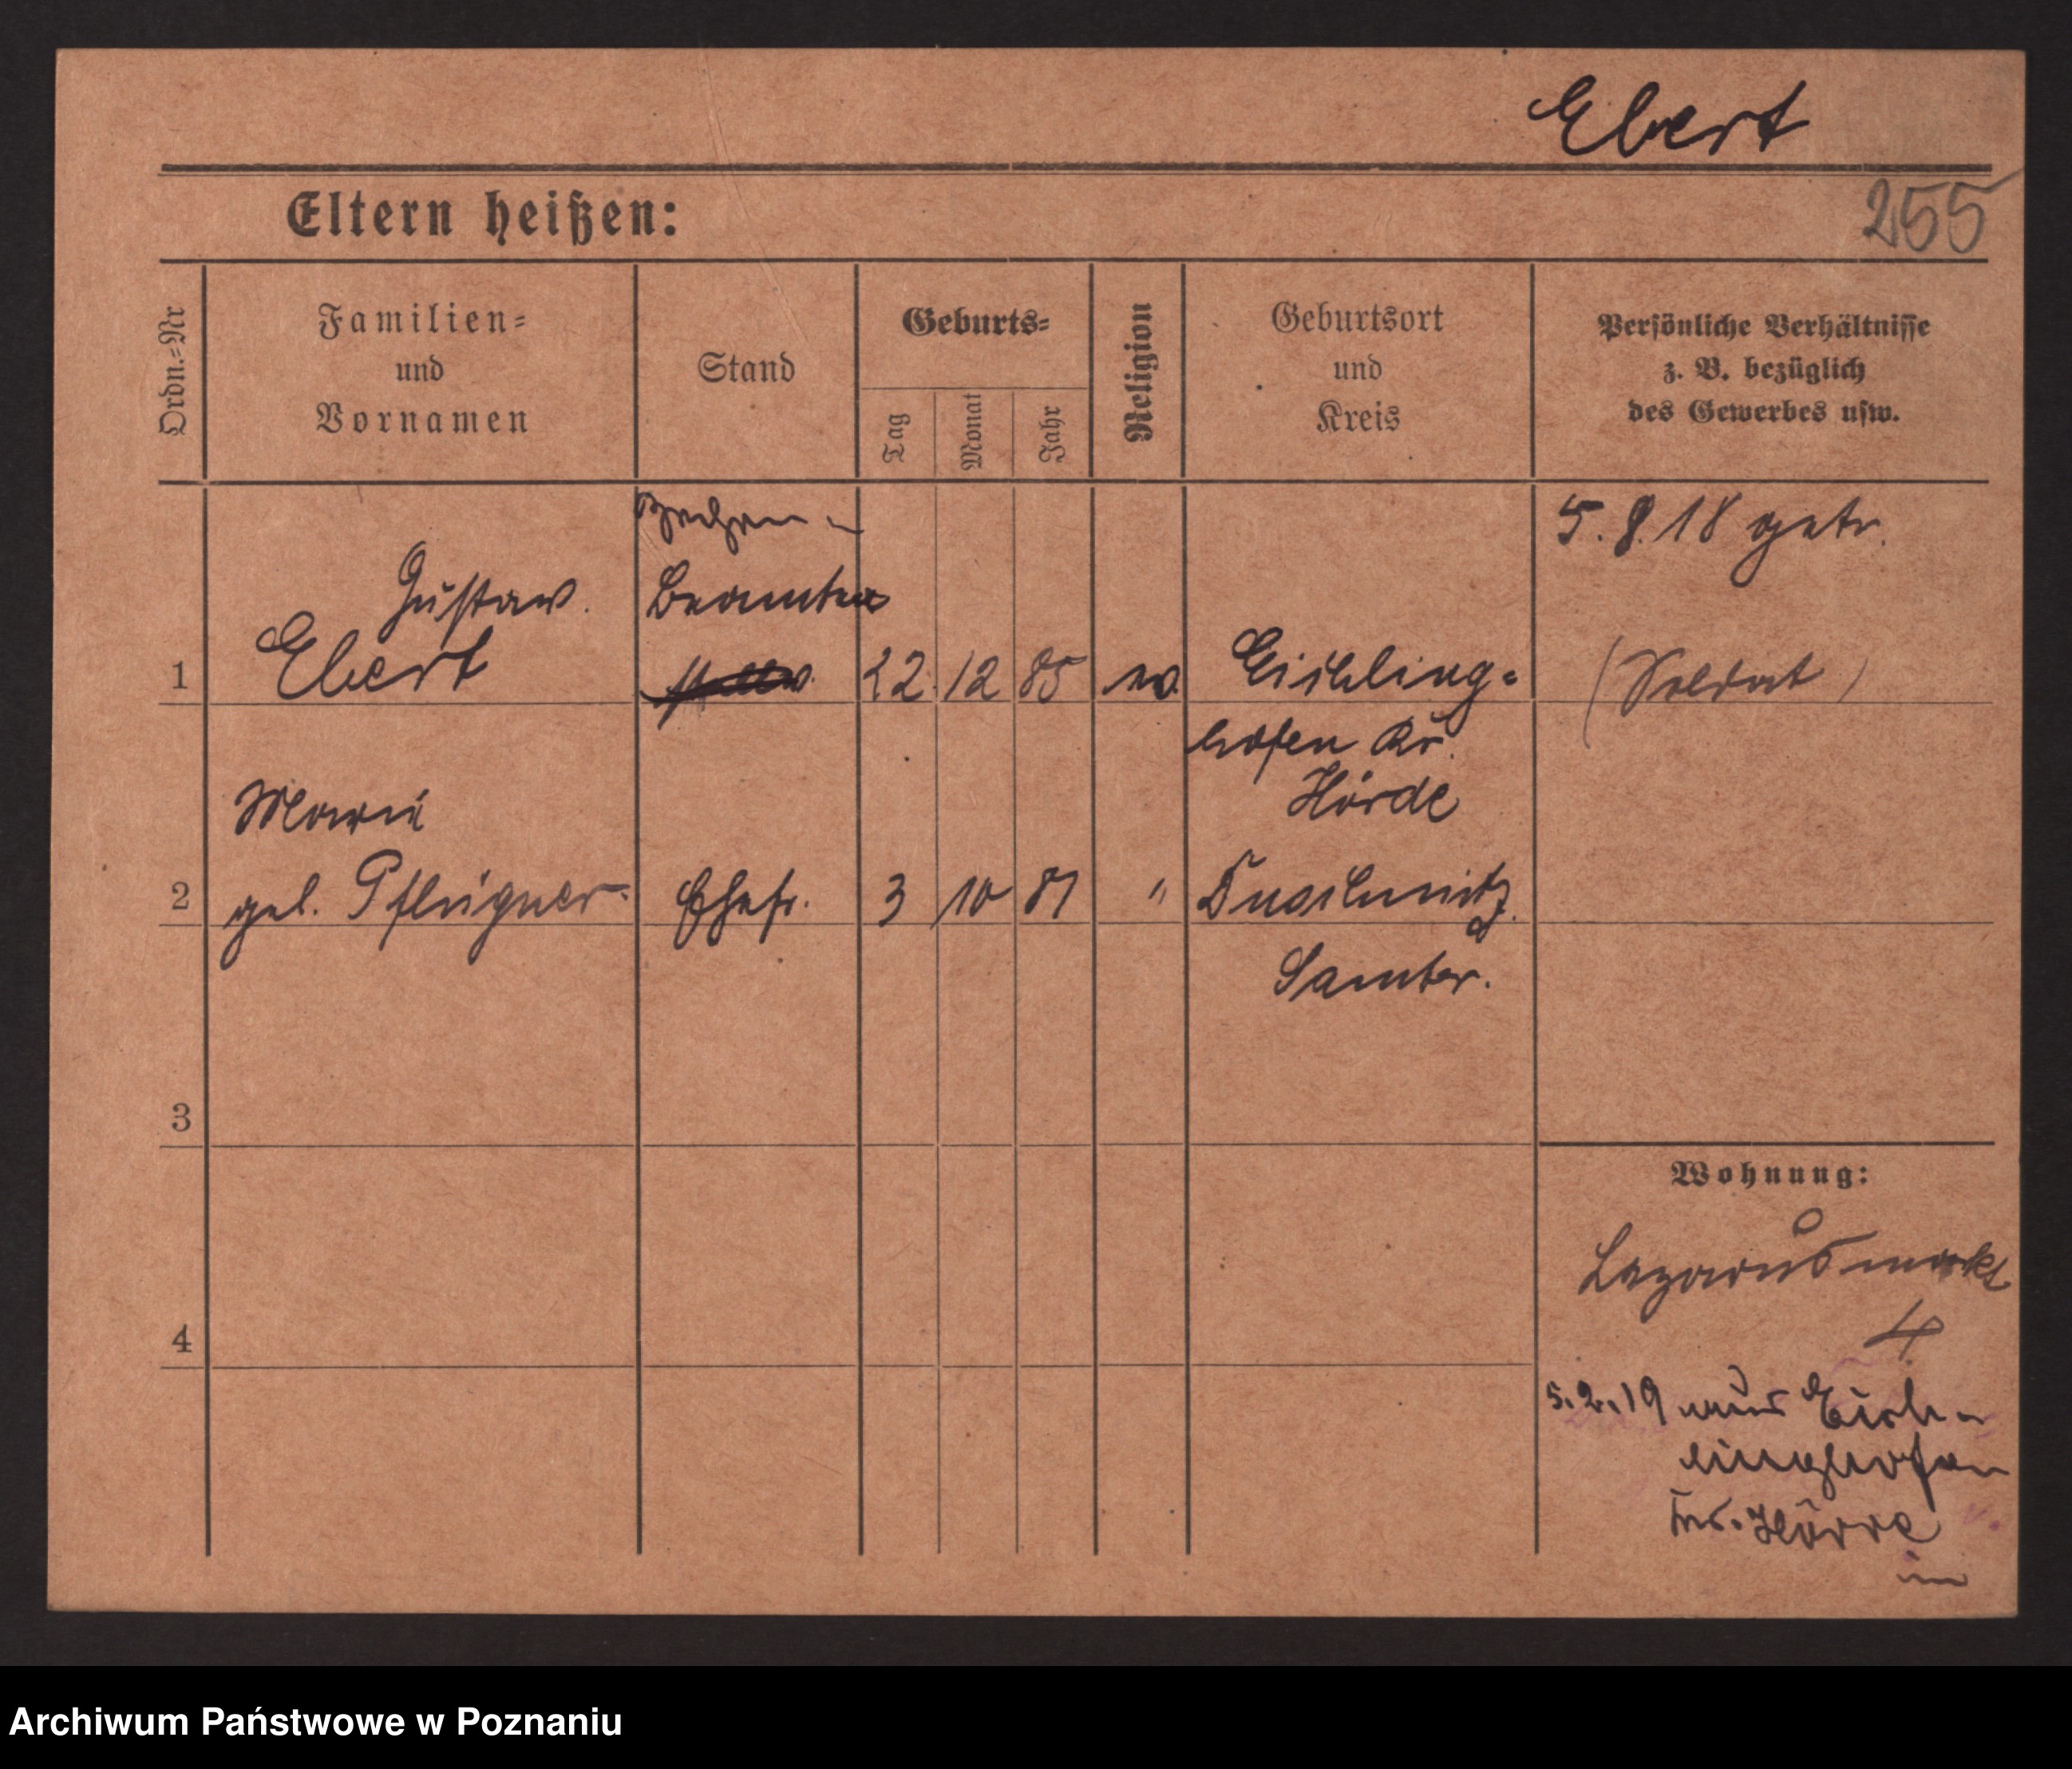 Ebert
255
Eltern heißen:
Ordn.=Nr
Familien=
und
Vornamen
Stand
Geburts=
Tag
Monat
Jahr
Religion
Geburtsort
und
Kreis
Persönliche Verhältnisse
z. B. bezüglich
des Gewerbes usw.
Zechen-
Beamter
5. 8. 18 getr.
Gustav.
1 Ebert 22 12 85 ev. Eichling=
(Soldat)
hofen Kr.
Hörde
Marie
2 geb. Pfleigner Ehefr. 3 10 87 " Duschnik
Samter.
3
4
Wohnung:
Lazarusmarkt
4
5.2.19 nach Eich-
linghofen
Krs. Hörde